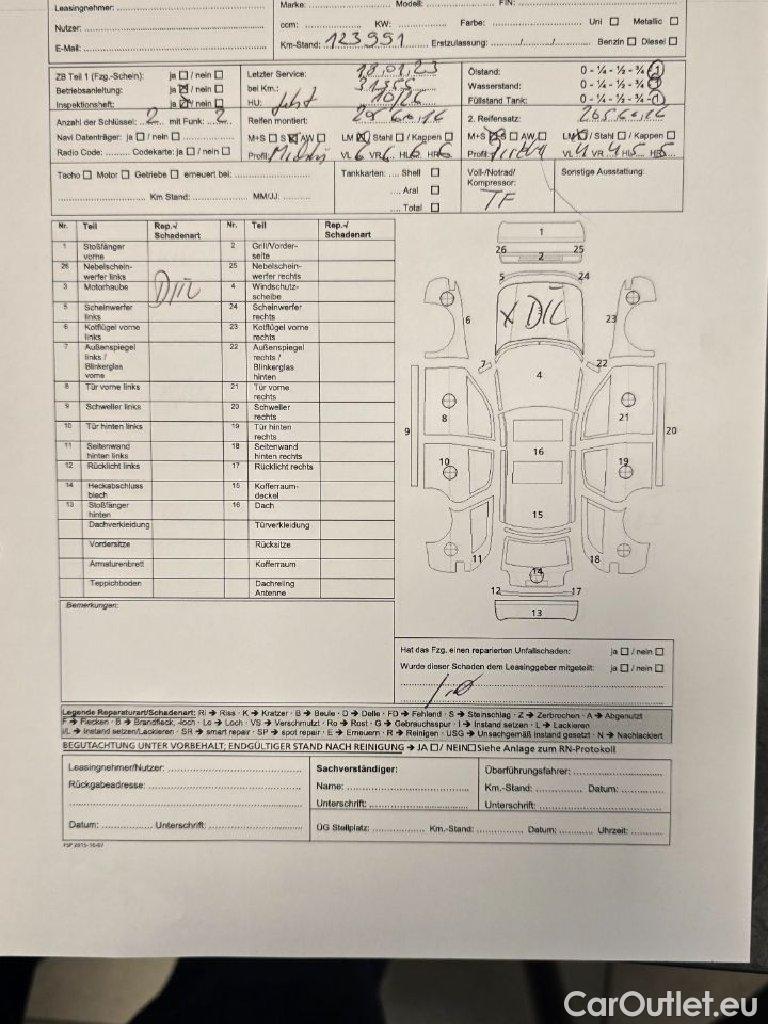 Leasingnehmer: Marke: Modell: FIN:
Nutzer: ccm: KW: Farbe: Uni Metallic
E-Mail: Km-Stand: 123991 Erstzulassung: Benzin Diesel
ZB Teil 1 (Fzg.-Schein): ja / nein
Betriebsanleitung: ja / nein
Inspektionsheft: ja / nein
Anzahl der Schlüssel: 2 mit Funk: 2
Navi Datenträger: ja / nein
Radio Code: Codekarte: ja / nein
Letzter Service: 18.01.23
bei Km.:
HU: 10/26
Reifen montiert:
M+S S AW LM / Stahl / Kappen
Profil: VL 6 VR 6 HL 6 HR 6
Ölstand: 0 - ¼ - ½ - ¾ - 1
Wasserstand: 0 - ¼ - ½ - ¾
Füllstand Tank: 0 - ¼ - ½ - ¾ - 1
2. Reifensatz:
M+S S AW LM / Stahl / Kappen
Profil: VL 4 VR 4 HL 5 HR 5
Tacho Motor Getriebe erneuert bei:
Km Stand: MM/JJ:
Tankkarten: Shell
Aral
Total
Voll-/Notrad/
Kompressor:
TF
Sonstige Ausstattung:
Nr. Teil Rep.-/ Schadenart Nr. Teil Rep.-/ Schadenart
1 Stoßfänger vorne 2 Grill/Vorder-seite
26 Nebelschein-werfer links 25 Nebelschein-werfer rechts
3 Motorhaube DIL 4 Windschutz-scheibe
5 Scheinwerfer links 24 Scheinwerfer rechts
6 Kotflügel vorne links 23 Kotflügel vorne rechts
7 Außenspiegel links / Blinkerglas vorne 22 Außenspiegel rechts / Blinkerglas hinten
8 Tür vorne links 21 Tür vorne rechts
9 Schweller links 20 Schweller rechts
10 Tür hinten links 19 Tür hinten rechts
11 Seitenwand hinten links 18 Seitenwand hinten rechts
12 Rücklicht links 17 Rücklicht rechts
14 Heckabschluss blech 15 Kofferraum-deckel
13 Stoßfänger hinten 16 Dach
Dachverkleidung Türverkleidung
Vordersitze Rücksitze
Armaturenbrett Kofferraum
Teppichboden Dachreling Antenne
1
26 2 25
5 24
X DIL
6 23
7 22
4
8 21
9 20
16
10 19
15
11 18
14
12 17
13
Bemerkungen:
Hat das Fzg. einen reparierten Unfallschaden: ja / nein
Wurde dieser Schaden dem Leasinggeber mitgeteilt: ja / nein
Legende Reparaturart/Schadenart: RI → Riss · K → Kratzer · B → Beule · D → Delle · FD → Fehlend · S → Steinschlag · Z → Zerbrochen · A → Abgenutzt
F → Flecken · B → Brandfleck, -loch · Lo → Loch · VS → Verschmutzt · Ro → Rost · G → Gebrauchsspur · I → Instand setzen · L → Lackieren
I/L → Instand setzen/Lackieren · SR → smart repair · SP → spot repair · E → Erneuern · R → Reinigen · USG → Unsachgemäß instand gesetzt · N → Nachlackiert
BEGUTACHTUNG UNTER VORBEHALT; ENDGÜLTIGER STAND NACH REINIGUNG → JA / NEIN Siehe Anlage zum RN-Protokoll
Leasingnehmer/Nutzer:
Rückgabeadresse:
Datum: Unterschrift:
Sachverständiger:
Name:
Unterschrift:
Überführungsfahrer:
Km.-Stand: Datum:
Unterschrift:
ÜG Stellplatz: Km.-Stand: Datum: Uhrzeit:
CarOutlet.eu